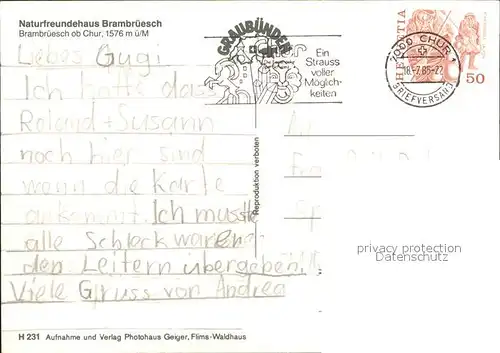 Naturfreundehaus Brambrüesch
Brambrüesch ob Chur, 1576 m ü/M
GRAUBÜNDEN
Ein
Strauss
voller
Möglich-
keiten
7000 CHUR 1
18.-7.85-22
BRIEFVERSAND
HELVETIA
50
Liebes Gugi
Ich hoffe dass
Roland + Susann
noch hier sind
wenn die Karte
ankommt. Ich musste
alle Schleckwaren
den Leitern übergeben!
Viele Gruss von Andrea
Reproduktion verboten
privacy protection
Datenschutz
H 231 Aufnahme und Verlag Photohaus Geiger, Flims-Waldhaus